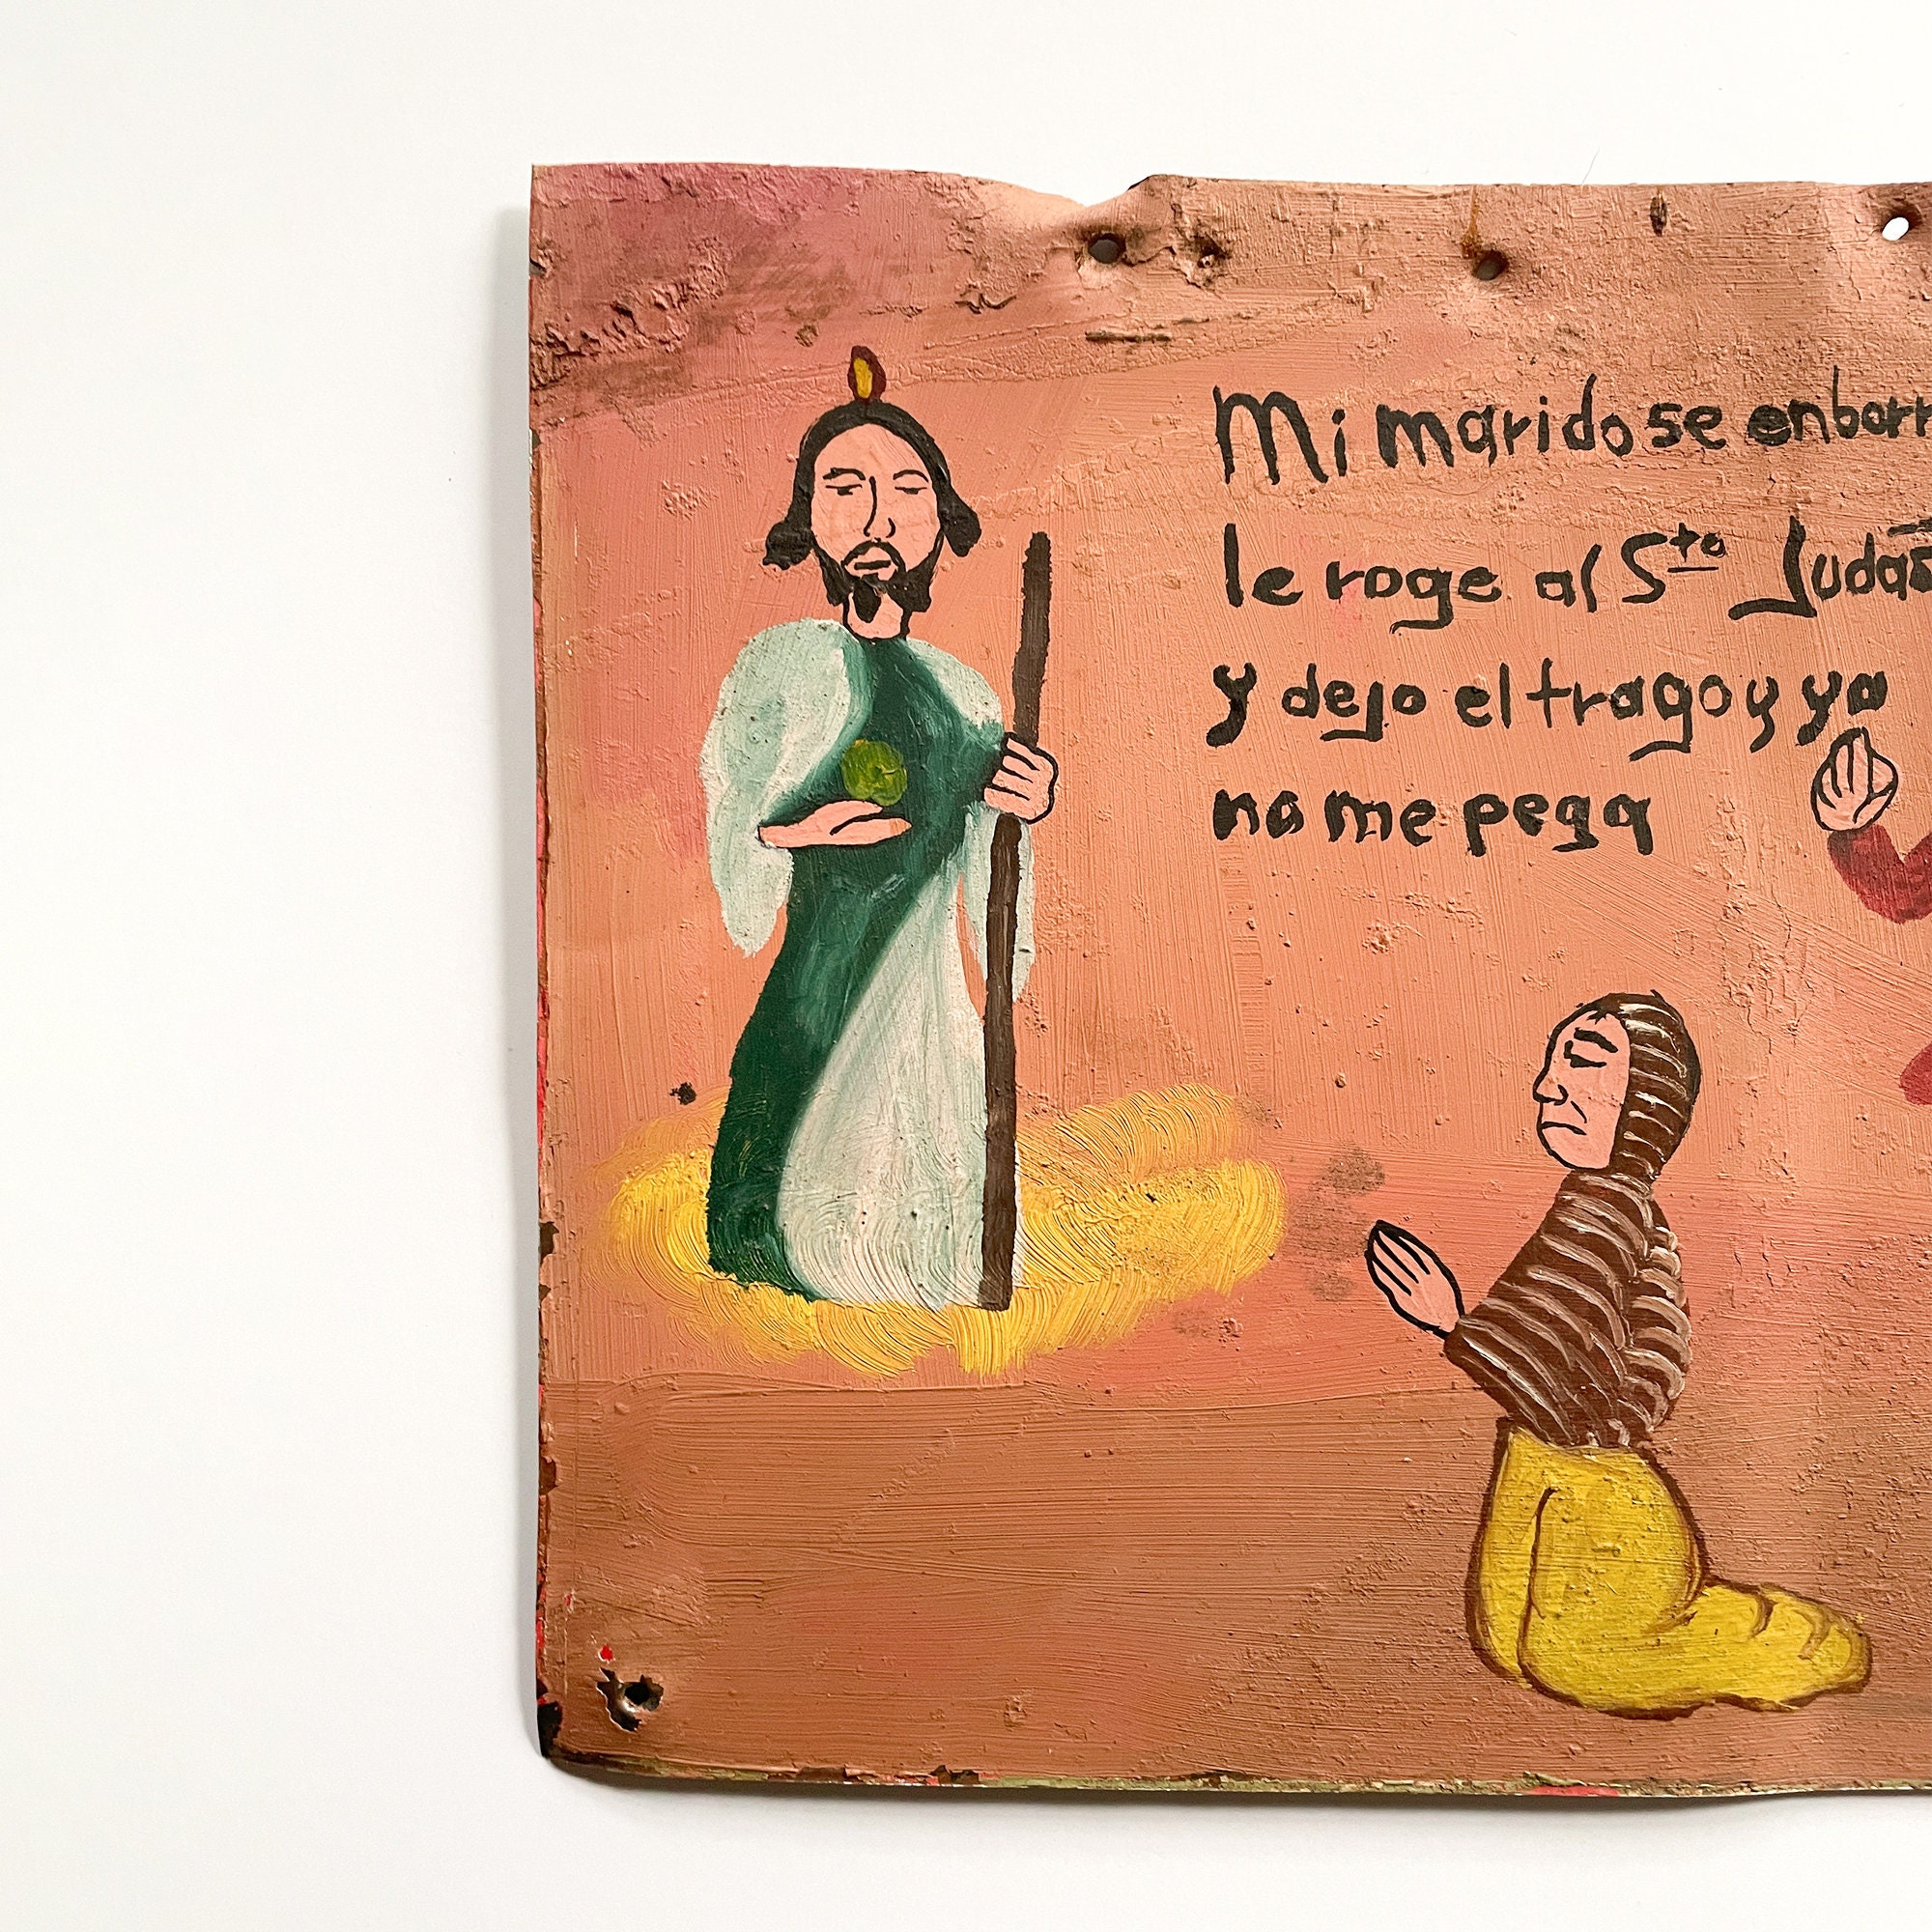 Mi marido se enborr
le roge al Sto Judas
y dejo el trago y ya
no me pega